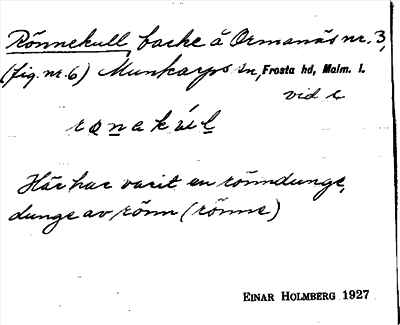 Rönnekull, backe å Ormanäs nr. 3,
(fig. nr. 6) Munkarps sn, Frosta hd, Malm. l.
vid
rønakúl
Här har varit en rönndunge,
dunge av rönn (rönne)
EINAR HOLMBERG 1927